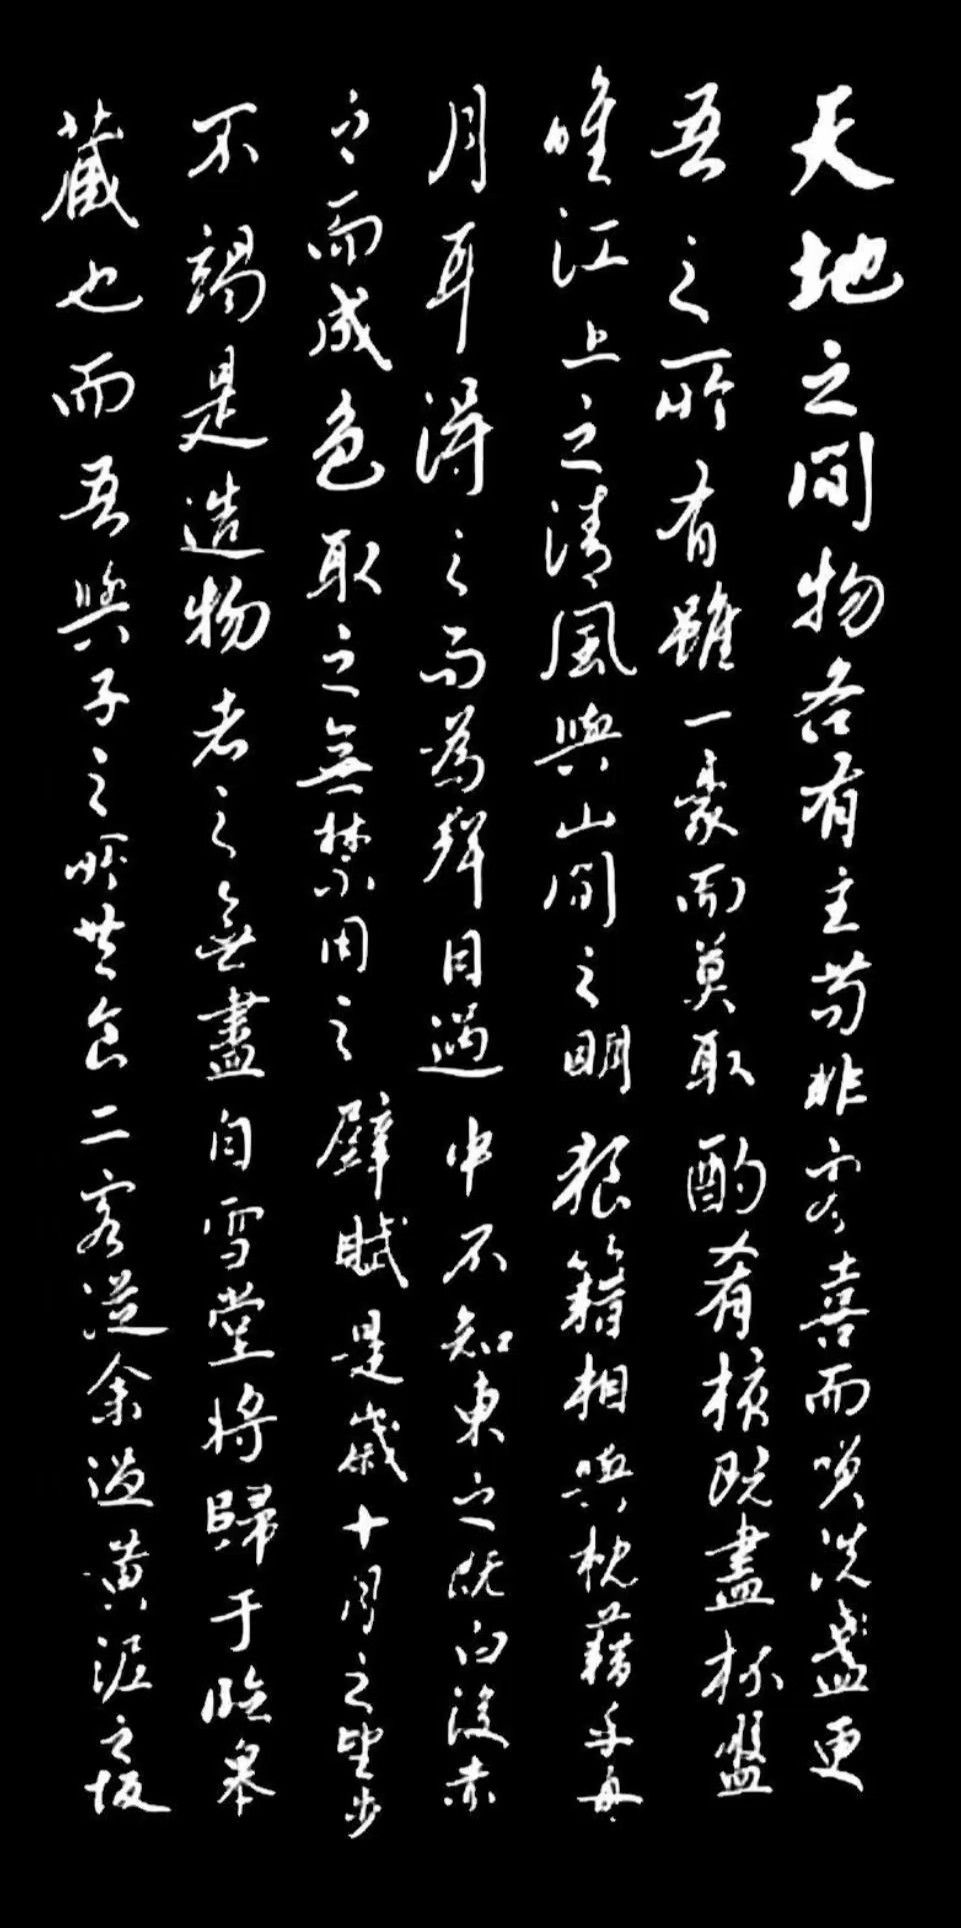 天地之間物各有主苟非
吾之所有雖一豪而莫取
唯江上之清風與山間之明
月耳得之而為聲目遇
之而成色取之無禁用之
不竭是造物者之無盡
藏也而吾與子之所共食
客喜而咲洗盞更
酌肴核既盡杯盤
狼籍相與枕藉乎舟
中不知東之既白後赤
壁賦是歲十月之望步
自雪堂將歸于臨皋
二客從余過黃泥之坂